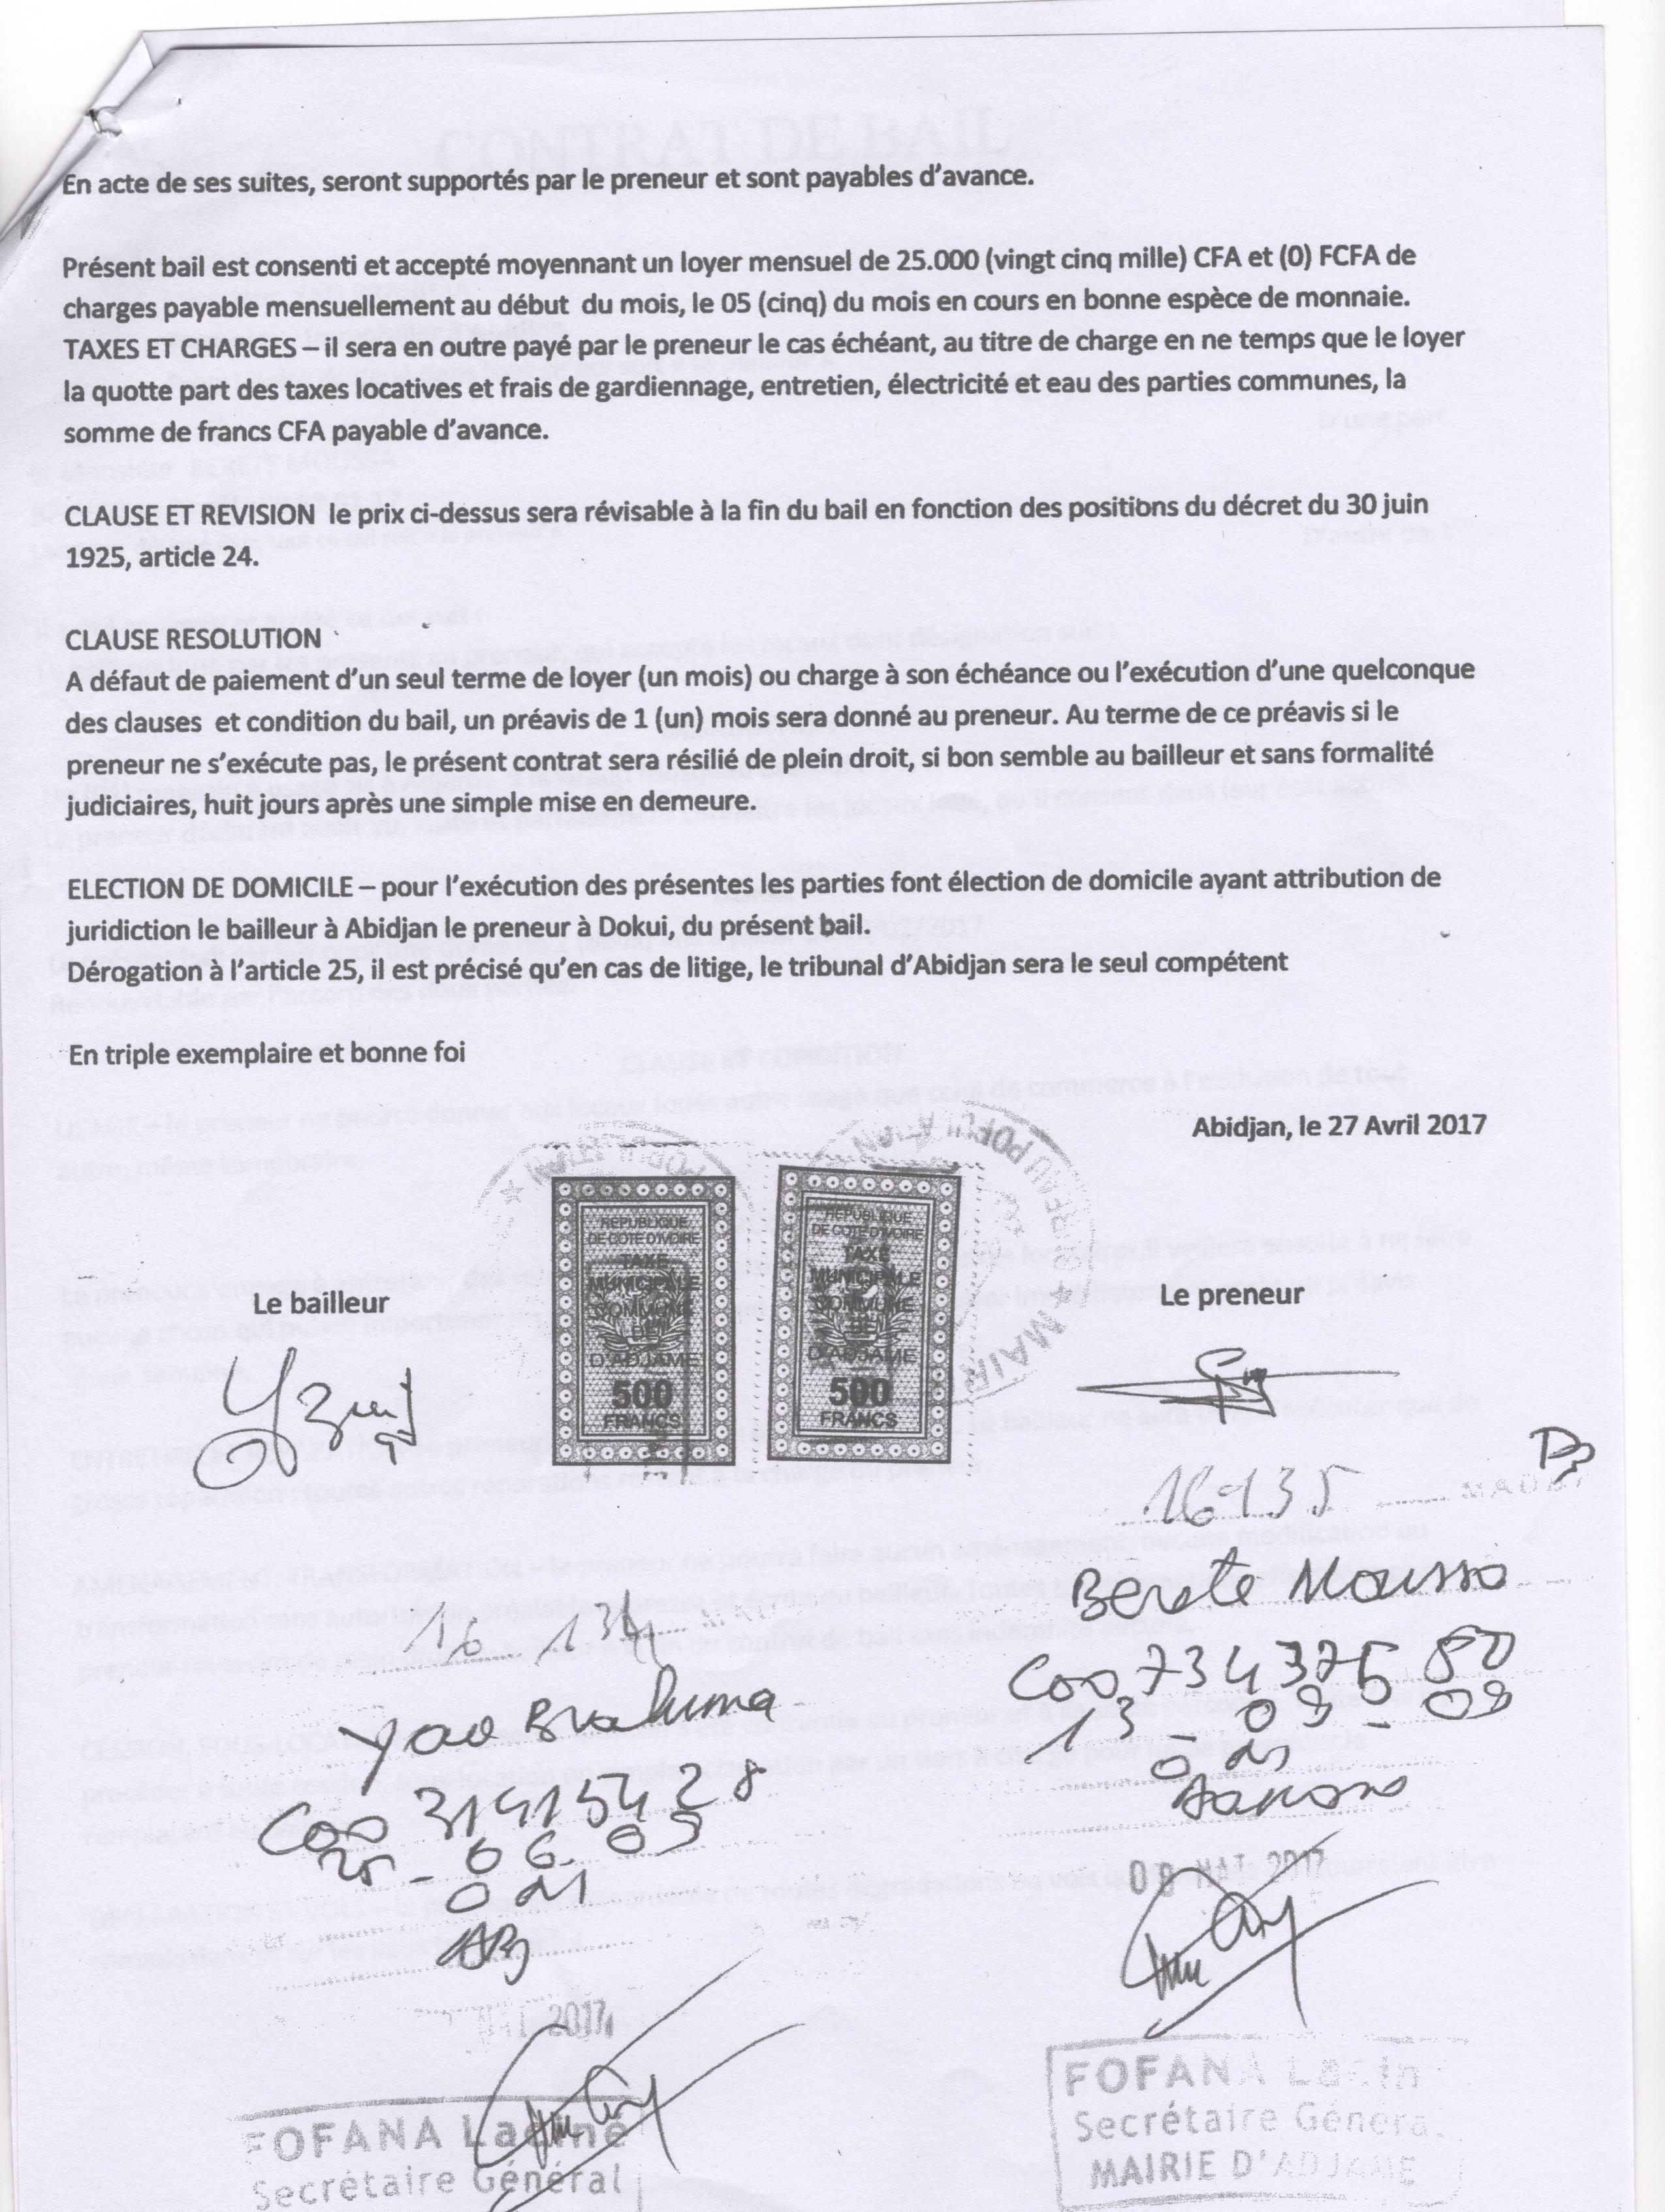 En acte de ses suites, seront supportés par le preneur et sont payables d'avance.
Présent bail est consenti et accepté moyennant un loyer mensuel de 25.000 (vingt cinq mille) CFA et (0) FCFA de
charges payable mensuellement au début du mois, le 05 (cinq) du mois en cours en bonne espèce de monnaie.
TAXES ET CHARGES – il sera en outre payé par le preneur le cas échéant, au titre de charge en ne temps que le loyer
la quotte part des taxes locatives et frais de gardiennage, entretien, électricité et eau des parties communes, la
somme de francs CFA payable d'avance.
CLAUSE ET REVISION le prix ci-dessus sera révisable à la fin du bail en fonction des positions du décret du 30 juin
1925, article 24.
CLAUSE RESOLUTION
A défaut de paiement d'un seul terme de loyer (un mois) ou charge à son échéance ou l'exécution d'une quelconque
des clauses et condition du bail, un préavis de 1 (un) mois sera donné au preneur. Au terme de ce préavis si le
preneur ne s'exécute pas, le présent contrat sera résilié de plein droit, si bon semble au bailleur et sans formalité
judiciaires, huit jours après une simple mise en demeure.
ELECTION DE DOMICILE – pour l'exécution des présentes les parties font élection de domicile ayant attribution de
juridiction le bailleur à Abidjan le preneur à Dokui, du présent bail.
Dérogation à l'article 25, il est précisé qu'en cas de litige, le tribunal d'Abidjan sera le seul compétent
En triple exemplaire et bonne foi
Abidjan, le 27 Avril 2017
REPUBLIQUE
DE COTE D'IVOIRE
TAXE
MUNICIPALE
COMMUNE
D'ADJAME
500
FRANCS
REPUBLIQUE
DE COTE D'IVOIRE
TAXE
MUNICIPALE
COMMUNE
D'ADJAME
500
FRANCS
MAIRI
Le bailleur
Le preneur
16135
Berete Moussa
C00 734 376 80
13 - 09 - 09
08 MAI 2017
FOFANA Lacin
Secrétaire Généra
MAIRIE D'ADJAME
16 134
Yao Brahuma
C00 314154 28
25 - 06 . 09
ABJ
2017
FOFANA Laciné
Secrétaire Général